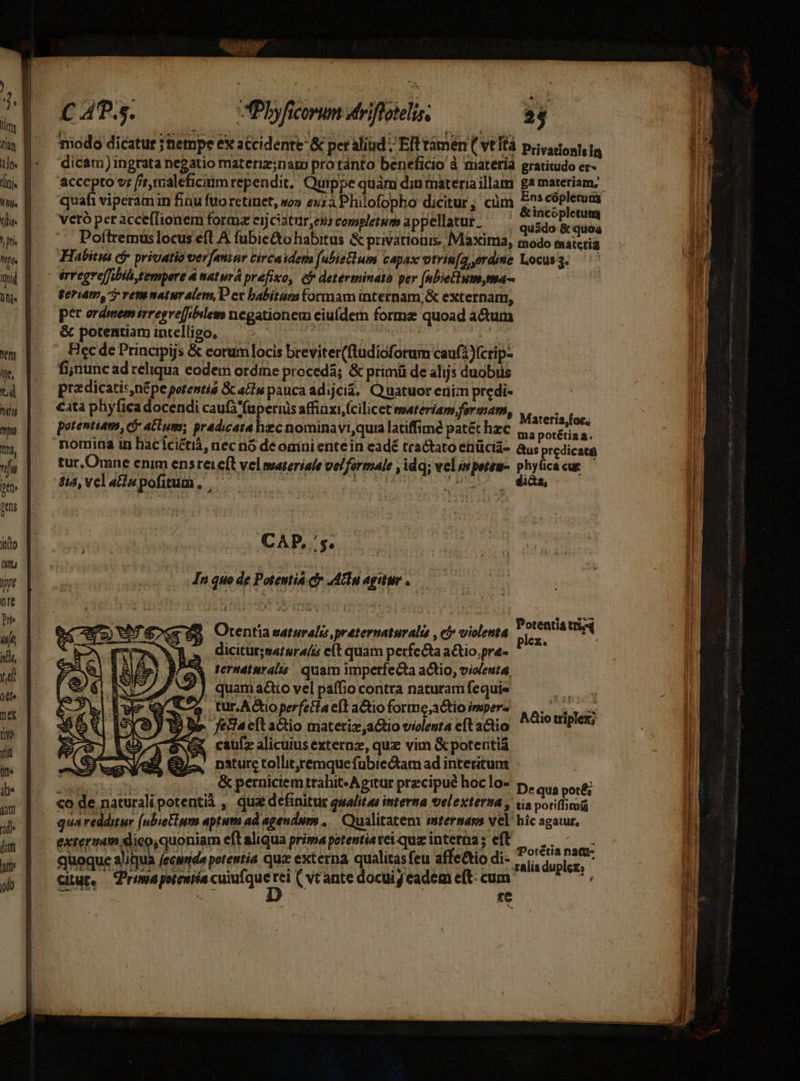 CAP.5. Phyſicorum Ariſtotelis. 25
modo dicatur; nempe ex accidente & per aliud. Eſt tamen (vt ita
dicam) ingrata negatio materiæ; nam pro tanto beneficio à materia
accepto vt ſit, maleficium rependit. Quippe quàm diu materia illam
quaſi viperam in ſinu ſuo retinet, non ens à Philoſopho dicitur, cùm
verò per acceſſionem formæ eijciatur, ens completum appellatur.
Poſtremus locus eſt A ſubiecto habitus & priuationis. Maxima,
Habitus & priuatio verſantur circa idem ſubiectum capax vtriuſq, ordine
irregreſſibili, tempore à naturâ prefixo, & determinato per ſubiectum, ma-
teriam, & rem naturalem, Per habitum formam internam, & externam,
per ordinem irregreſſibilem negationem eiuſdem formæ quoad actum
& potentiam intelligo.
Hęc de Principijs & eorum locis breviter (ſtudioſorum cauſâ) ſcrip-
ſi; nunc ad reliqua eodem ordine procedã; & primũ de alijs duobus
prædicatis, nẽpe potentiâ & actu pauca adijciã. Quatuor enim prędi-
cata phyſica docendi cauſâ ſuperiùs affinxi, ſcilicet materiam, formam,
potentiam, & actum; prædicata hæc nominavi, quia latiſſimè patẽt hæc
nomina in hac ſciẽtiâ, nec nõ de omni ente in eadẽ tractato enũciã-
tur. Omne enim ens rei eſt vel materiale vel formale, idq; vel in poten-
tia, vel actu poſitum.
Privationis in
gratitudo er-
ga materiam.
Ens cõpletum
& incõpletum
quãdo & quo
modo materia
Locus 3.
Materia, for-
ma potẽtia a-
ctus prędicata
phyſica cur
dicta,
CAP. 5.
In quo de Potentiâ & Actu agitur.
Potentia naturalis, præternaturalis, & violenta
dicitur; naturalis eſt quam perfecta actio, præ-
ternaturalis quam imperfecta actio, violenta
quam actio vel paſſio contra naturam ſequi-
tur. Actio perfecta eſt actio formę, actio imper-
fecta eſt actio materiæ, actio violenta eſt actio
cauſæ alicuius externæ, quæ vim & potentiâ
naturę tollit, remque ſubiectam ad interitum
& perniciem trahit. Agitur præcipuè hoc lo-
co de naturali potentiâ, quæ definitur qualitas interna vel externa,
qua redditur ſubiectum aptum ad agendum. Qualitatem internam vel
externam dico, quoniam eſt aliqua prima potentia rei quæ interna; eſt
quoque aliqua ſecunda potentia quæ externa qualitas ſeu affectio di-
citur. Prima potentia cuiuſque rei (vt ante docui) eadem eſt cum
Potentia tri-
plex.
Actio triplex;
De qua potẽ-
tia potiſſimũ
hic agatur.
Potẽtia natu-
ralis duplex;
D re